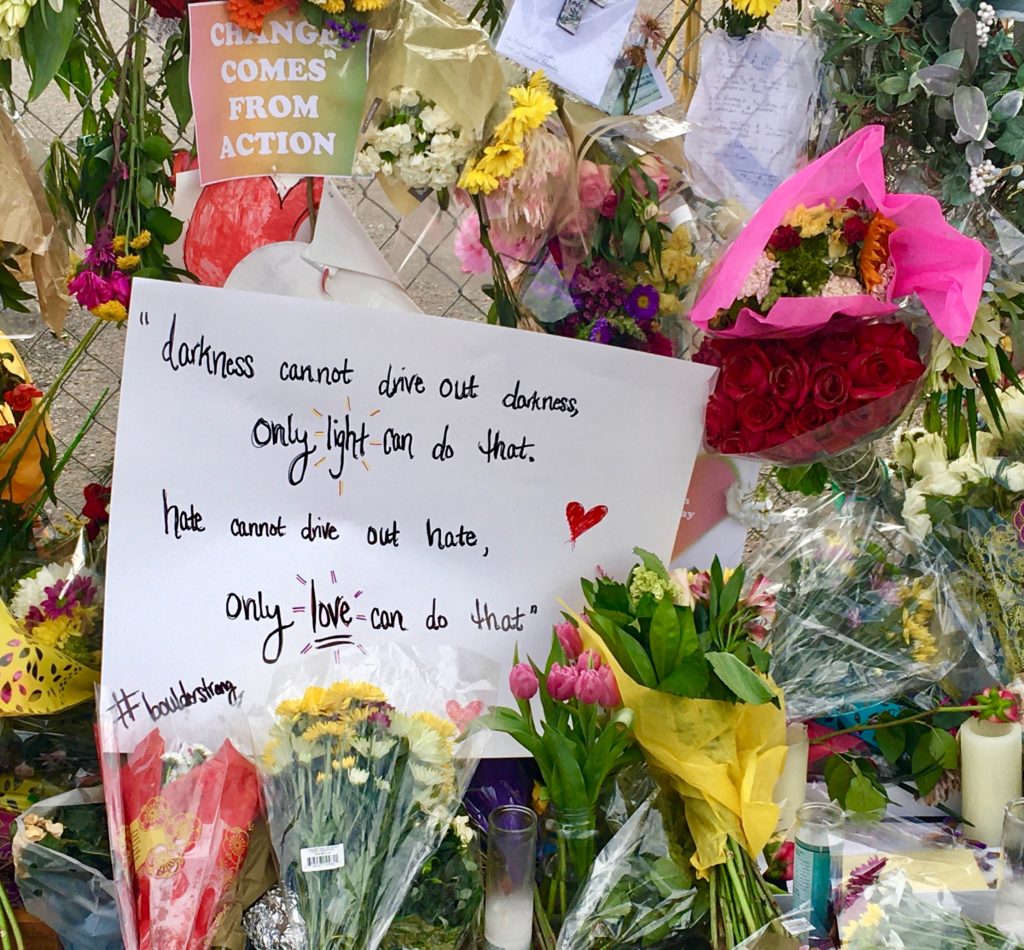 CHANGE
COMES
FROM
ACTION
"darkness cannot drive out darkness,
only light can do that.
hate cannot drive out hate,
only love can do that"
#boulderstrong